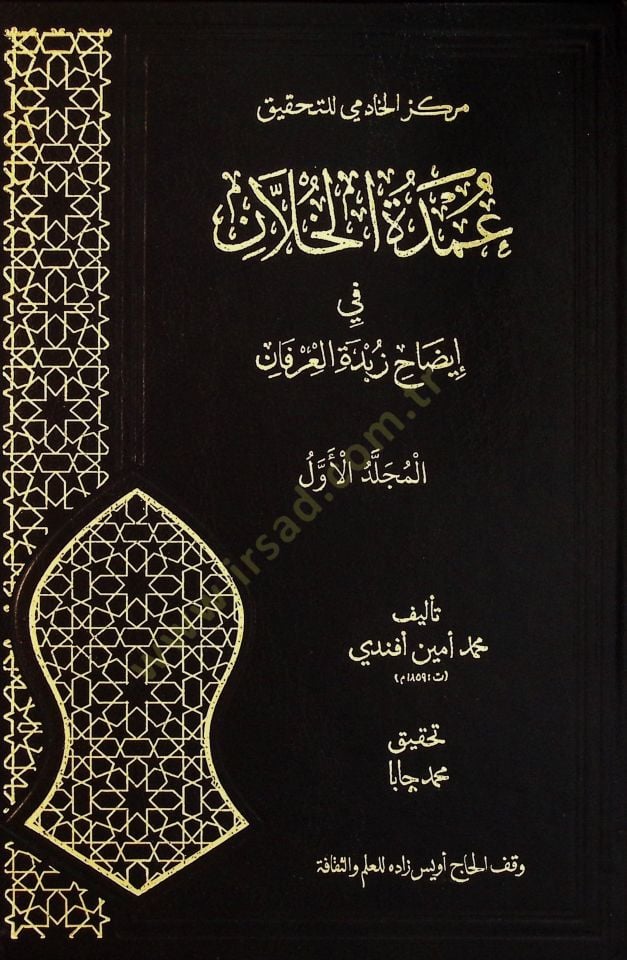 مركز الخادمي للتحقيق
عُمْدَةُ الْخُلَّانِ
فِي
إِيضَاحِ زُبْدَةِ الْعِرْفَانِ
الْمُجَلَّدُ الْأَوَّلُ
تأليف
محمد أمين أفندي
(ت: ١٨٥٩م)
تحقيق
محمد چابا
وقف الحاج أويس زاده للعلم والثقافة
www.irsad.com.tr